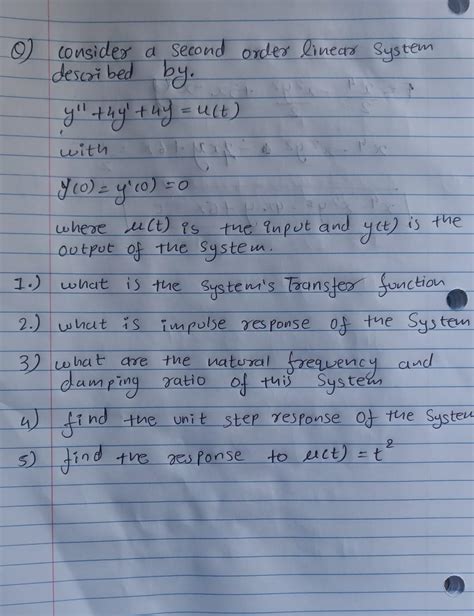 Q) consider a second order linear system
described by.
y'' + 4y' + 4y = u(t)
with
y(0) = y'(0) = 0
where u(t) is the input and y(t) is the
output of the system.
1.) what is the system's Transfer function
2.) what is impulse response of the system
3) what are the natural frequency and
damping ratio of this system
4) find the unit step response of the system
5) find the response to u(t) = t²